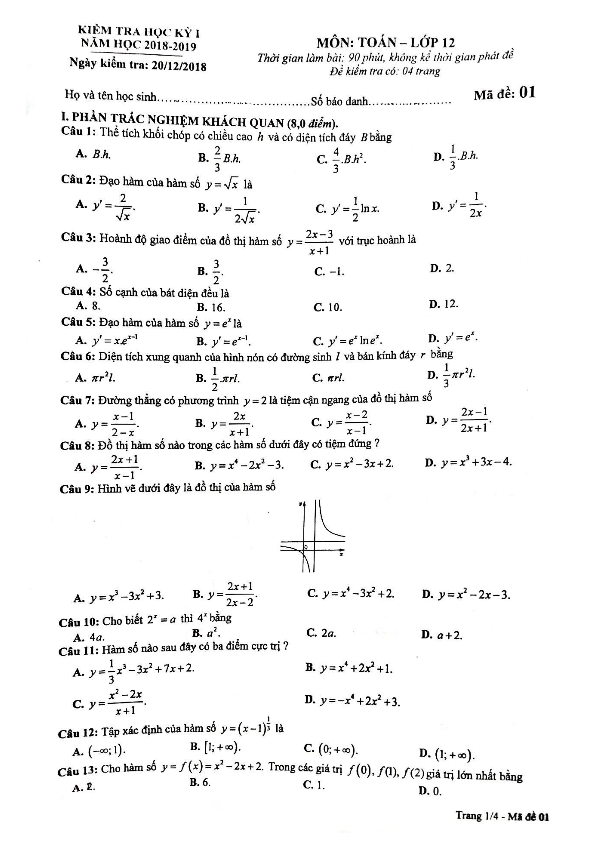 KIỂM TRA HỌC KỲ I
NĂM HỌC 2018-2019
Ngày kiểm tra: 20/12/2018
MÔN: TOÁN – LỚP 12
Thời gian làm bài: 90 phút, không kể thời gian phát đề
Đề kiểm tra có: 04 trang
Họ và tên học sinh..............................Số báo danh........................ Mã đề: 01
I. PHẦN TRẮC NGHIỆM KHÁCH QUAN (8,0 điểm).
Câu 1: Thể tích khối chóp có chiều cao h và có diện tích đáy B bằng
A. B.h. B. 2/3 B.h. C. 4/3 .B.h². D. 1/3 .B.h.
Câu 2: Đạo hàm của hàm số y = √x là
A. y' = 2/√x. B. y' = 1/(2√x). C. y' = 1/2 ln x. D. y' = 1/(2x).
Câu 3: Hoành độ giao điểm của đồ thị hàm số y = (2x−3)/(x+1) với trục hoành là
A. −3/2. B. 3/2. C. −1. D. 2.
Câu 4: Số cạnh của bát diện đều là
A. 8. B. 16. C. 10. D. 12.
Câu 5: Đạo hàm của hàm số y = eˣ là
A. y' = x.eˣ⁻¹ B. y' = eˣ⁻¹. C. y' = eˣ ln eˣ. D. y' = eˣ.
Câu 6: Diện tích xung quanh của hình nón có đường sinh l và bán kính đáy r bằng
A. πr²l. B. 1/2 πrl. C. πrl. D. 1/3 πr²l.
Câu 7: Đường thẳng có phương trình y = 2 là tiệm cận ngang của đồ thị hàm số
A. y = (x−1)/(2−x). B. y = 2x/(x+1). C. y = (x−2)/(x−1). D. y = (2x−1)/(2x+1).
Câu 8: Đồ thị hàm số nào trong các hàm số dưới đây có tiệm đứng ?
A. y = (2x+1)/(x−1). B. y = x⁴ − 2x² − 3. C. y = x² − 3x + 2. D. y = x³ + 3x − 4.
Câu 9: Hình vẽ dưới đây là đồ thị của hàm số
A. y = x³ − 3x² + 3. B. y = (2x+1)/(2x−2). C. y = x⁴ − 3x² + 2. D. y = x² − 2x − 3.
Câu 10: Cho biết 2ˣ = a thì 4ˣ bằng
A. 4a. B. a². C. 2a. D. a + 2.
Câu 11: Hàm số nào sau đây có ba điểm cực trị ?
A. y = 1/3 x³ − 3x² + 7x + 2. B. y = x⁴ + 2x² + 1.
C. y = (x² − 2x)/(x+1). D. y = −x⁴ + 2x² + 3.
Câu 12: Tập xác định của hàm số y = (x−1)^(1/3) là
A. (−∞;1). B. [1; +∞). C. (0; +∞). D. (1; +∞).
Câu 13: Cho hàm số y = f(x) = x² − 2x + 2. Trong các giá trị f(0), f(1), f(2) giá trị lớn nhất bằng
A. 2. B. 6. C. 1. D. 0.
Trang 1/4 - Mã đề 01